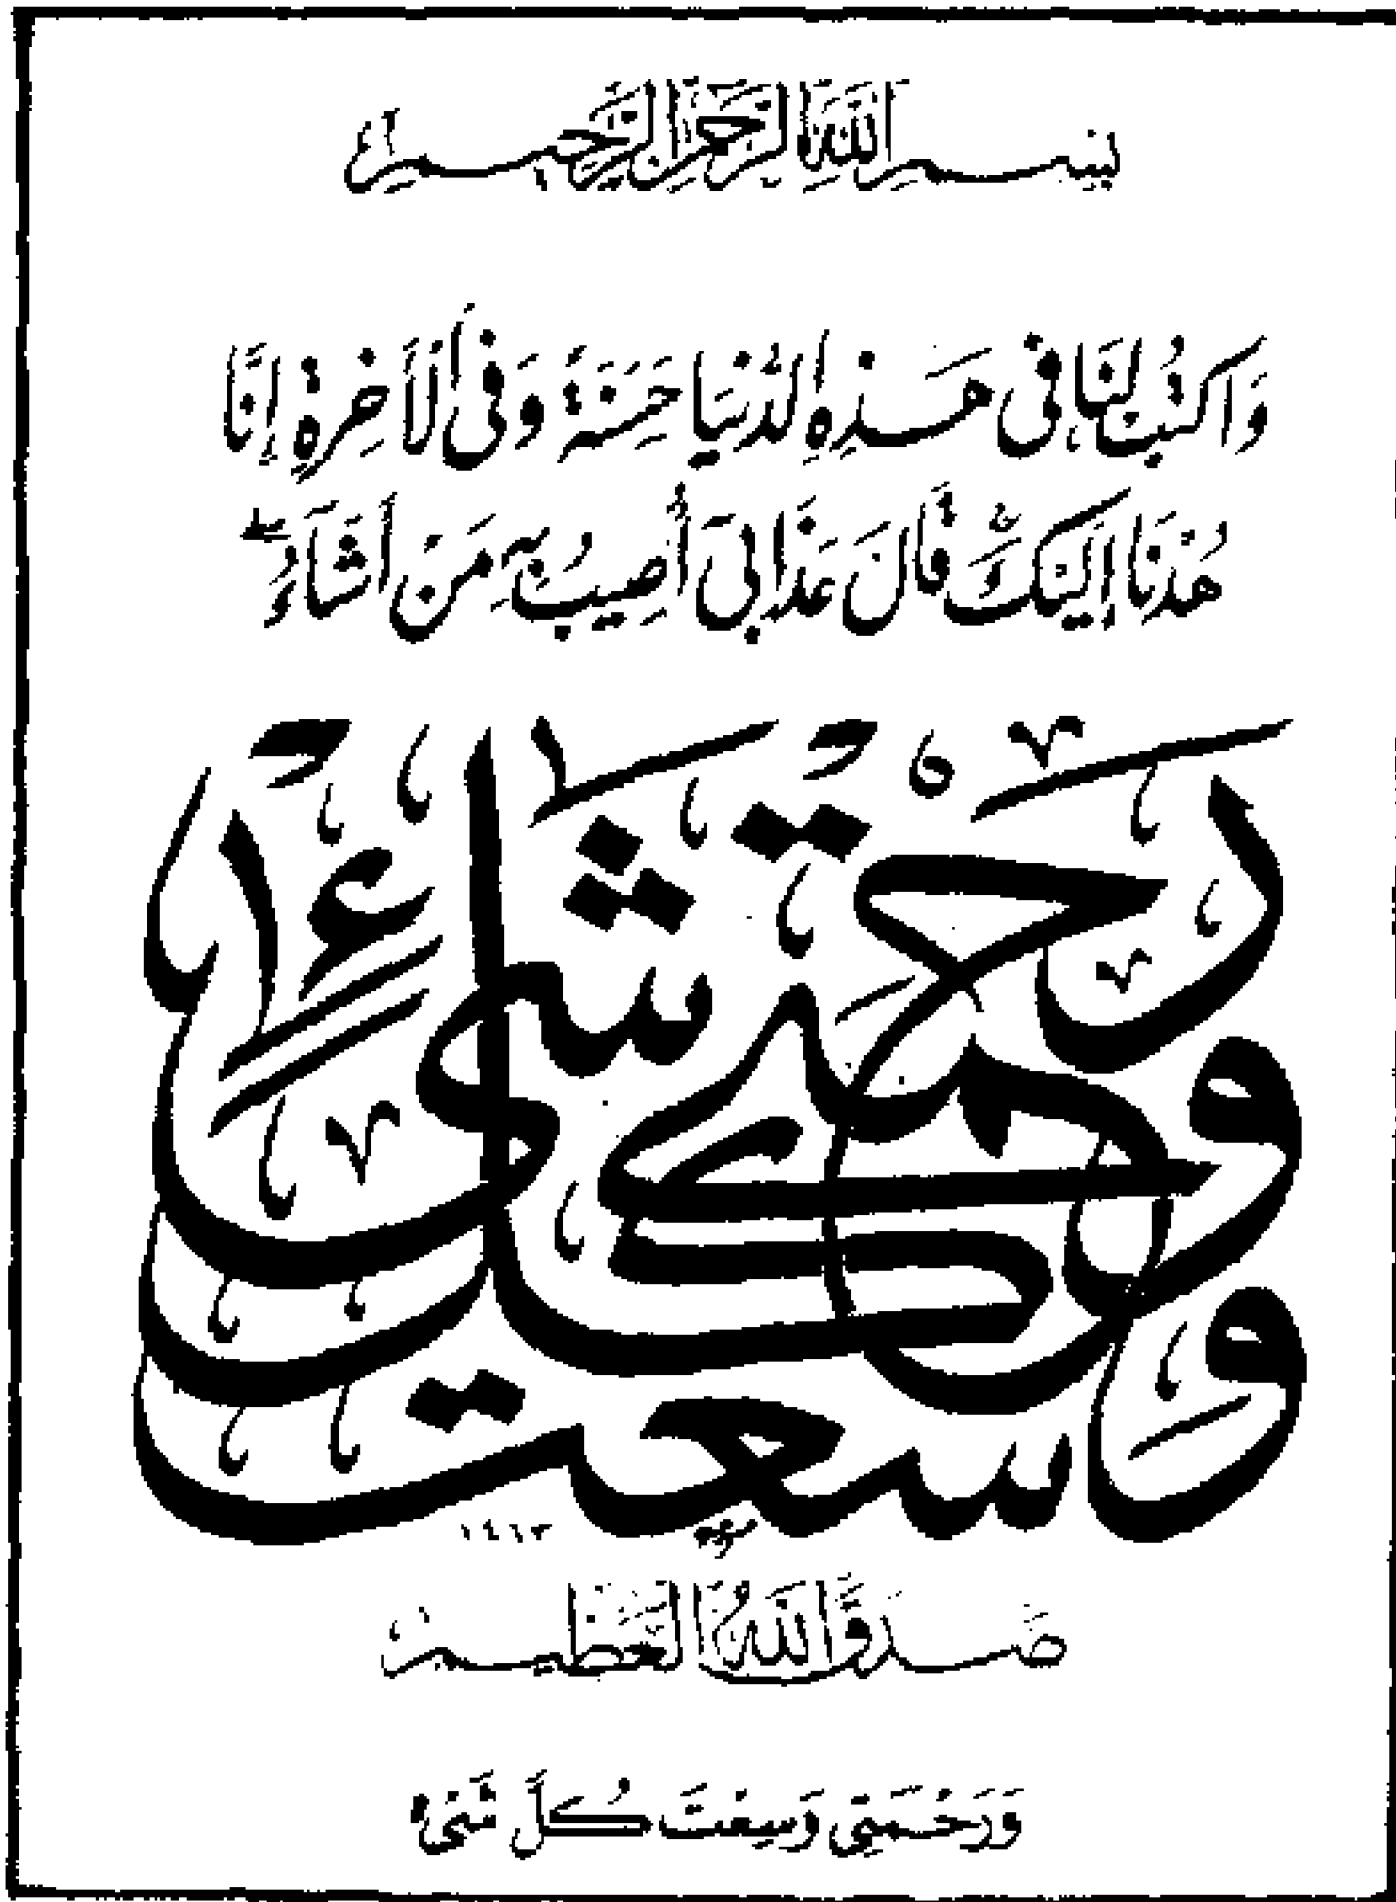 بِسْمِ اللَّهِ الرَّحْمَٰنِ الرَّحِيمِ
وَاكْتُبْ لَنَا فِي هَٰذِهِ الدُّنْيَا حَسَنَةً وَفِي الْآخِرَةِ إِنَّا
هُدْنَا إِلَيْكَ ۚ قَالَ عَذَابِي أُصِيبُ بِهِ مَنْ أَشَاءُ ۖ
وَرَحْمَتِي وَسِعَتْ كُلَّ شَيْءٍ
١٤١٣
صَدَقَ اللَّهُ الْعَظِيمُ
وَرَحْمَتِي وَسِعَتْ كُلَّ شَيْءٍ